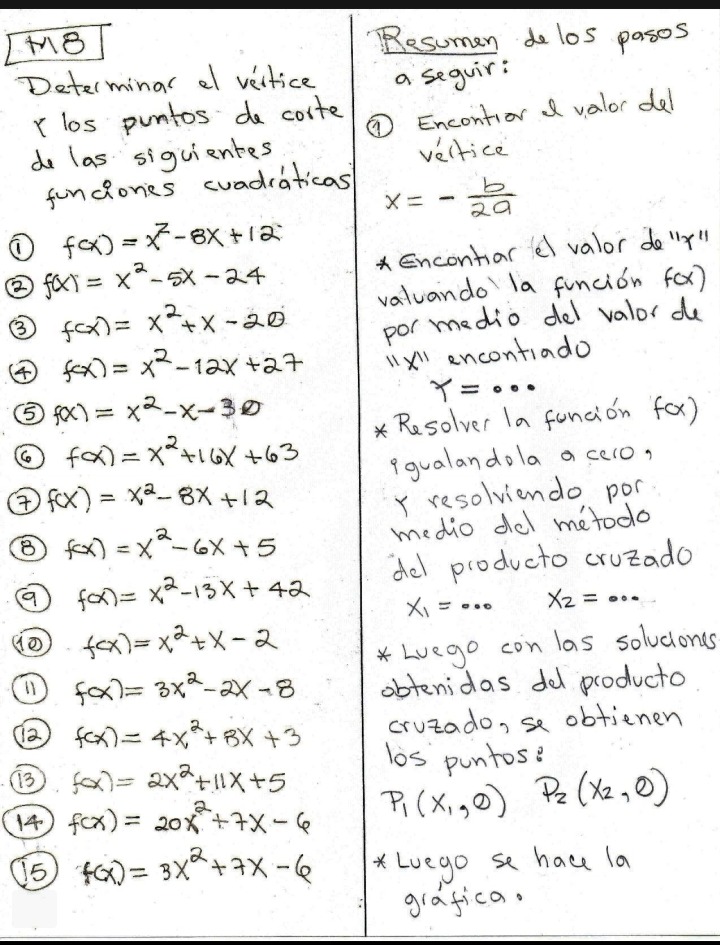 M8
Determinar el vértice
Y los puntos de corte
de las siguientes
funciones cuadráticas
① f(x) = x² - 8x + 12
② f(x) = x² - 5x - 24
③ f(x) = x² + x - 20
④ f(x) = x² - 12x + 27
⑤ f(x) = x² - x - 30
⑥ f(x) = x² + 16x + 63
⑦ f(x) = x² - 8x + 12
⑧ f(x) = x² - 6x + 5
⑨ f(x) = x² - 13x + 42
⑩ f(x) = x² + x - 2
⑪ f(x) = 3x² - 2x - 8
⑫ f(x) = 4x² + 8x + 3
⑬ f(x) = 2x² + 11x + 5
⑭ f(x) = 20x² + 7x - 6
⑮ f(x) = 3x² + 7x - 6
Resumen de los pasos
a seguir:
① Encontrar el valor del
vértice
x = - b/2a
* Encontrar el valor de "Y"
valuando la función f(x)
por medio del valor de
"x" encontrado
Y = ...
* Resolver la función f(x)
igualandola a cero,
Y resolviendo por
medio del método
del producto cruzado
X₁ = ... X₂ = ...
* Luego con las soluciones
obtenidas del producto
cruzado, se obtienen
los puntos:
P₁ (X₁, 0) P₂ (X₂, 0)
* Luego se hace la
gráfica.